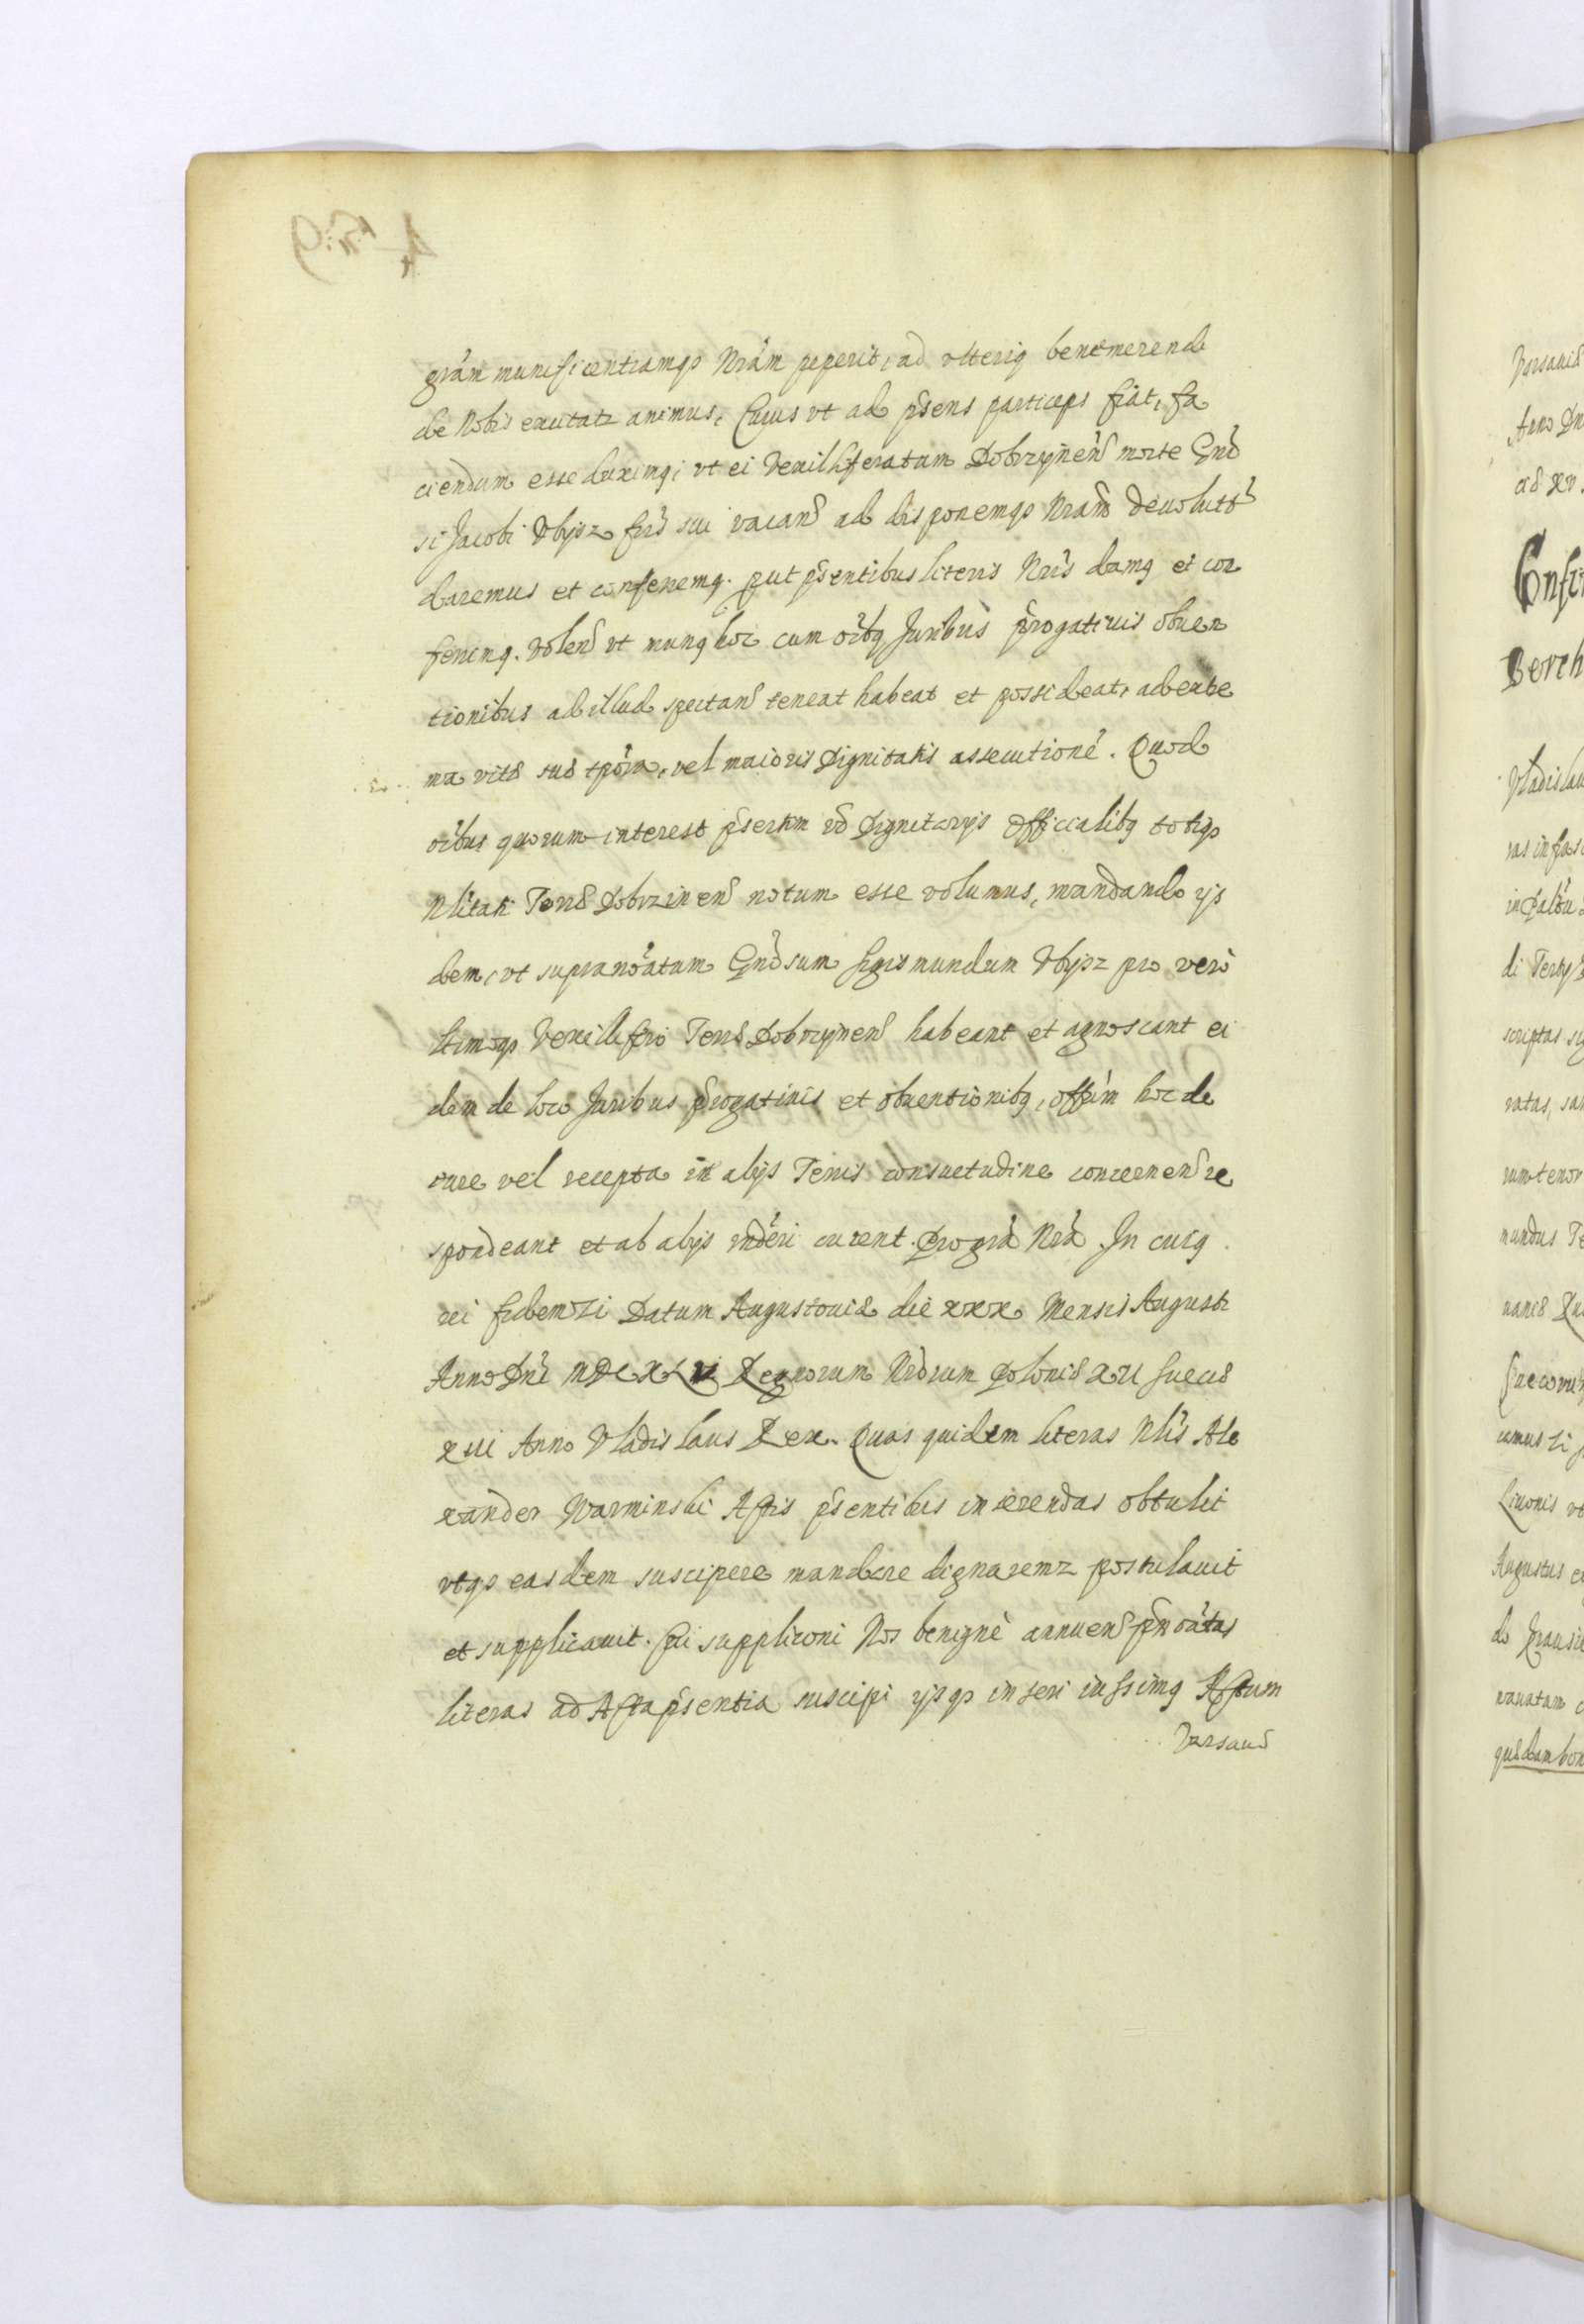 grãm munificentiamqs Nrãm peperit, ad vlteriq benemerende
de Nobis excitatr animus, Cuius vt ad pñsens particeps fiat, fa
ciendum esse duximq; vt ei Vexilliferatum Dobrzynen morte Gnõ
si Jacobi Vbysz frĩs sui vacan ad disponemqs Nram deuolutũ
daremus et conferremq. put pñsentibus literis Nrĩs damq et con
ferimq. Volen vt munq hoc cum oĩbq Juribus progatiuis obuen
tionibus ad illud spectan teneat habeat et possideat, ad extre
ma vitæ suæ tpõra, vel maioris Dignitatis assecutionẽ. Quod
oĩbus quorum interest pñsertim võ Dignitarijs Officialibq totiqs
Nlitati Terræ Dobrzinen notum esse volumus, mandando ijs
dem, vt supranoĩatum Gnõsum Sigismundum Vbysz pro vero
ltimoqs Vexillifero Terræ Dobrzynen habeant et agnoscant ei
dem de loco Juribus progatiuis et obuentionibq, offũm hoc de
iure vel recepta in alijs Terris consuetudine concernen re
spondeant et ab alijs rnderi curent. Pro grã Nrã. In cuiq
rei fidem Zi Datum Augustouiæ die xxx Mensis Augusti
Anno Dni MDCXLVI Regnorum Nrõrum Poloniæ XIV Sueciæ
XVI Anno Vladislaus Rex. Quas quidem literas Nlis Ale
xander Warminski Actis pñsentibus inserendas obtulit
vtqs easdem suscipere mandare dignaremr postulauit
et supplicauit. Cui supplicõni Nos benignè annuen pñnoĩatas
literas ad Acta pñsentia suscipi ijsqs inseri iussimq Actum
Varsauiæ